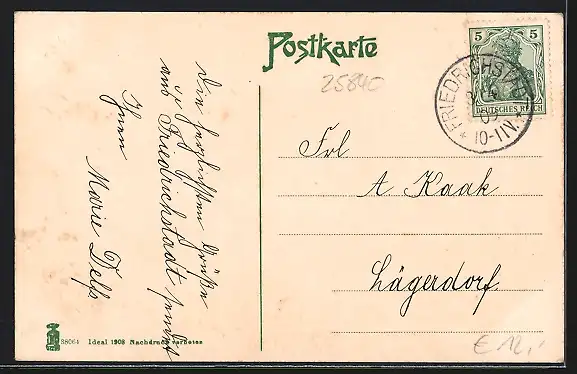 Postkarte
25840
5 5
DEUTSCHES REICH
FRIEDRICHSTADT
09
* 10-11V. *
Frl
A Kaak
Lägerdorf.
Die herzlichsten Grüße
aus Friedrichstadt sendet
Ihnen
Marie Dels
88064 Ideal 1908 Nachdruck verboten
€ 12,-